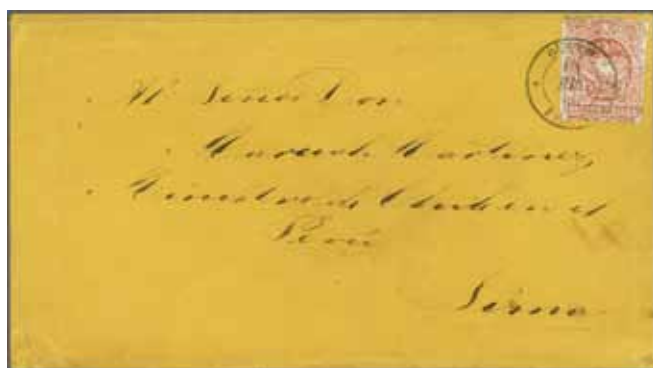 Al Señor Don
Marcial Martinez,
Ministro de Chile en el
Perú
Lima